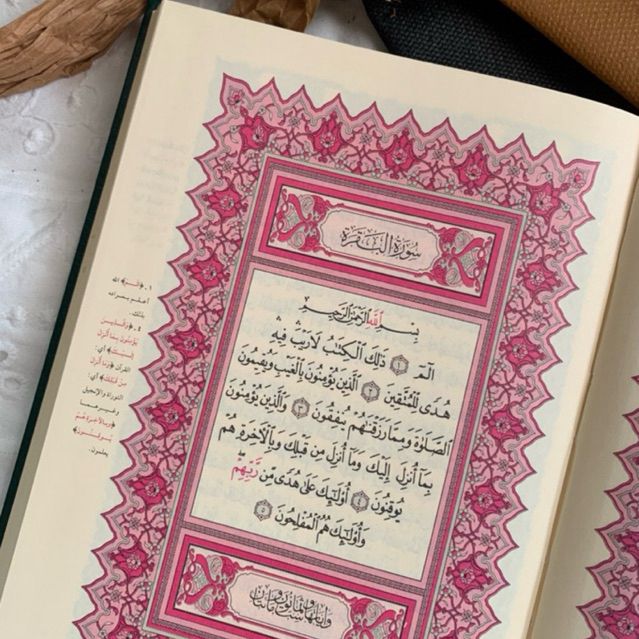 سُورَةُ البَقَرَة
بِسْمِ اللَّهِ الرَّحْمَٰنِ الرَّحِيمِ
الٓمٓ ١ ذَٰلِكَ الْكِتَابُ لَا رَيْبَ ۛ فِيهِ ۛ
هُدًى لِلْمُتَّقِينَ ٢ الَّذِينَ يُؤْمِنُونَ بِالْغَيْبِ وَيُقِيمُونَ
الصَّلَوٰةَ وَمِمَّا رَزَقْنَٰهُمْ يُنْفِقُونَ ٣ وَالَّذِينَ يُؤْمِنُونَ
بِمَا أُنْزِلَ إِلَيْكَ وَمَا أُنْزِلَ مِنْ قَبْلِكَ وَبِالْآخِرَةِ هُمْ
يُوقِنُونَ ٤ أُولَٰئِكَ عَلَىٰ هُدًى مِنْ رَبِّهِمْ
وَأُولَٰئِكَ هُمُ الْمُفْلِحُونَ ٥
١. ﴿الٓمٓ﴾ الله
أعلم بمراده
بذلك.
٤. ﴿وَالَّذِينَ
يُؤْمِنُونَ بِمَا أُنْزِلَ
إِلَيْكَ﴾ أي:
القرآن ﴿وَمَا أُنْزِلَ
مِنْ قَبْلِكَ﴾ أي:
التوراة والإنجيل
وغيرهما
﴿وَبِالْآخِرَةِ هُمْ
يُوقِنُونَ﴾
يعلمون.